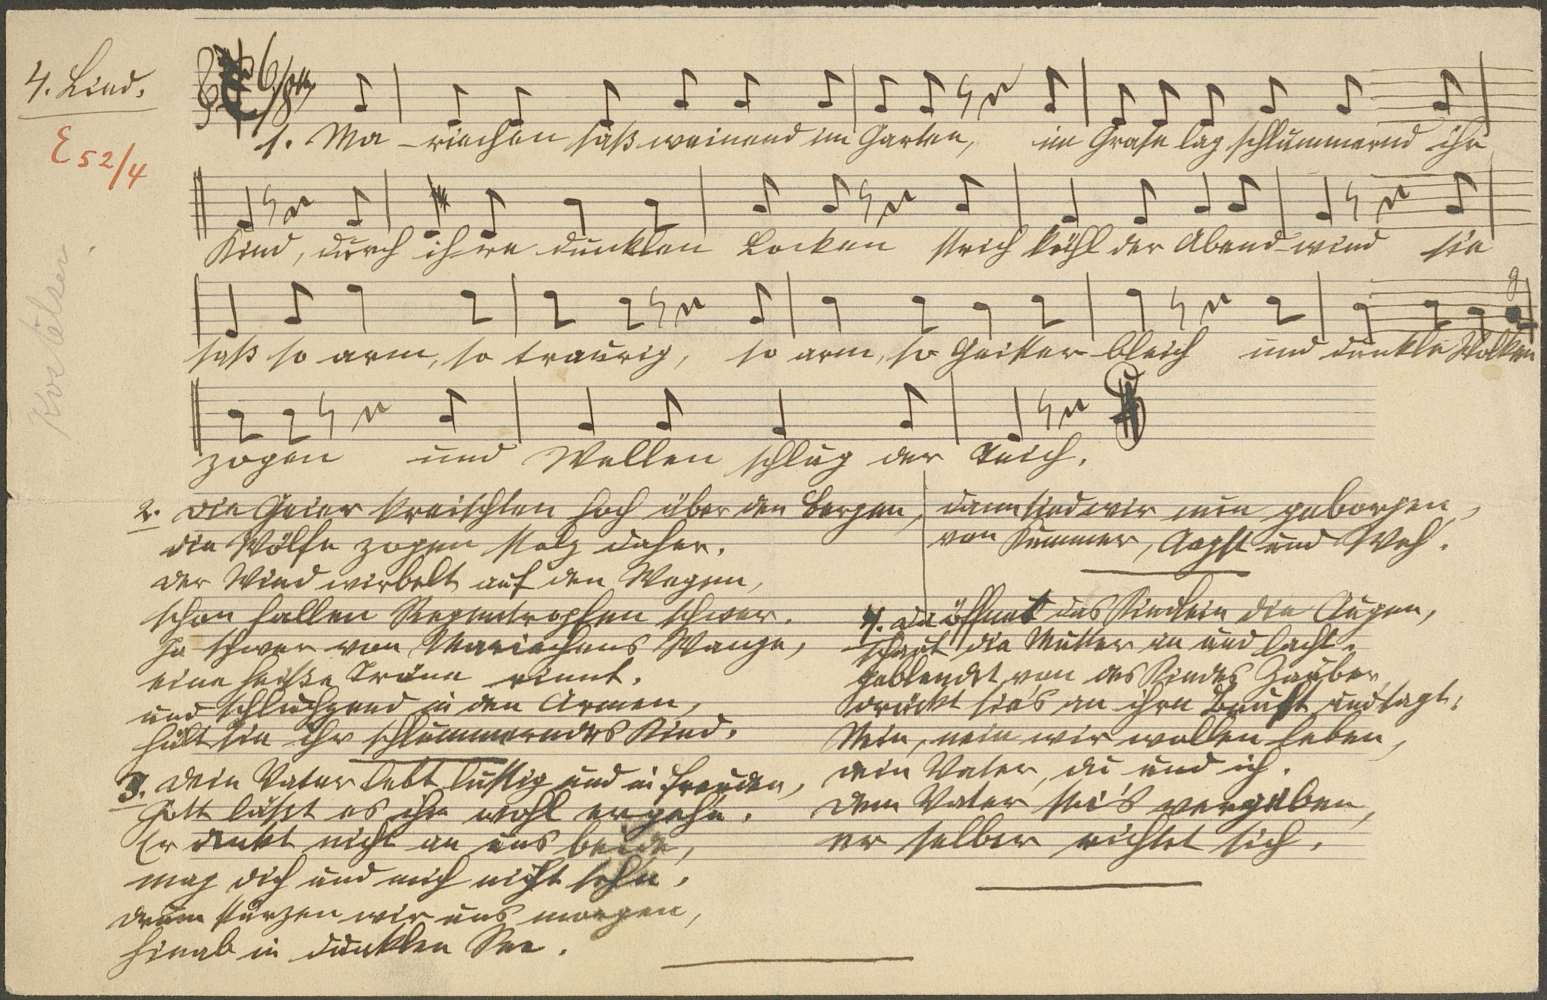 4. Lied.
E 52/4
6/8
1. Ma - riechen saß weinend im Garten, im Grase lag schlummernd ihr
Kind, durch ih-re dunklen Locken strich kühl der Abend-wind sie
saß so arm, so traurig, so arm, so Geister-bleich und dunkle Wolken
zogen und Wellen schlug der Teich.
2. Die Geier kreischten hoch über den Bergen,
die Wölfe zogen stolz daher.
Der Wind wirbelt auf den Wegen,
schon fallen Regentropfen schwer.
schwer von Mariechens Wange,
eine heiße Träne rinnt.
und schluchzend in den Armen,
hält sie ihr schlummerndes Kind.
3. Dein Vater lebt lustig und in Freuden,
Gott läßt es ihm wohl ergehn.
Er denkt nicht an uns beide,
mag dich und mich nicht sehn.
Drum stürzen wir uns morgen,
hinab in dunklen See.
dann sind wir nun geborgen,
von Kummer, Angst und Weh.
4. Da öffnet das Kindlein die Augen,
schaut die Mutter an und lacht.
geblendet von des Kindes Zauber,
drückt sie's an ihre Brust und sagt:
Nein, nein wir wollen leben,
dein Vater, du und ich.
Dem Vater sei's vergeben,
er selber richtet sich.